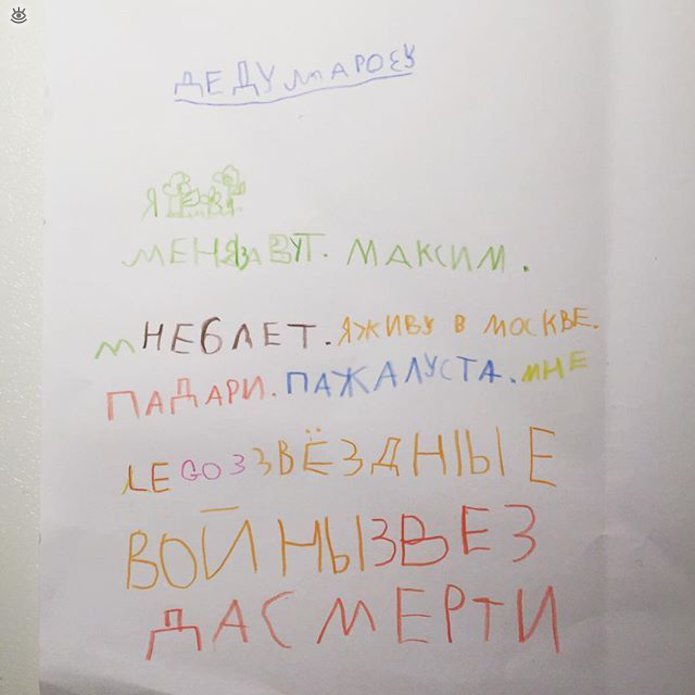 ДЕДУ МАРОЗУ
Я
МЕНЯ ЗАВУТ. МАКСИМ.
МНЕ 6 ЛЕТ. Я ЖИВУ В МОСКВЕ.
ПАДАРИ. ПАЖАЛУСТА. МНЕ
LEGO З ЗВЁЗДНЫЕ
ВОЙНЫ ЗВЕЗ
ДА СМЕРТИ